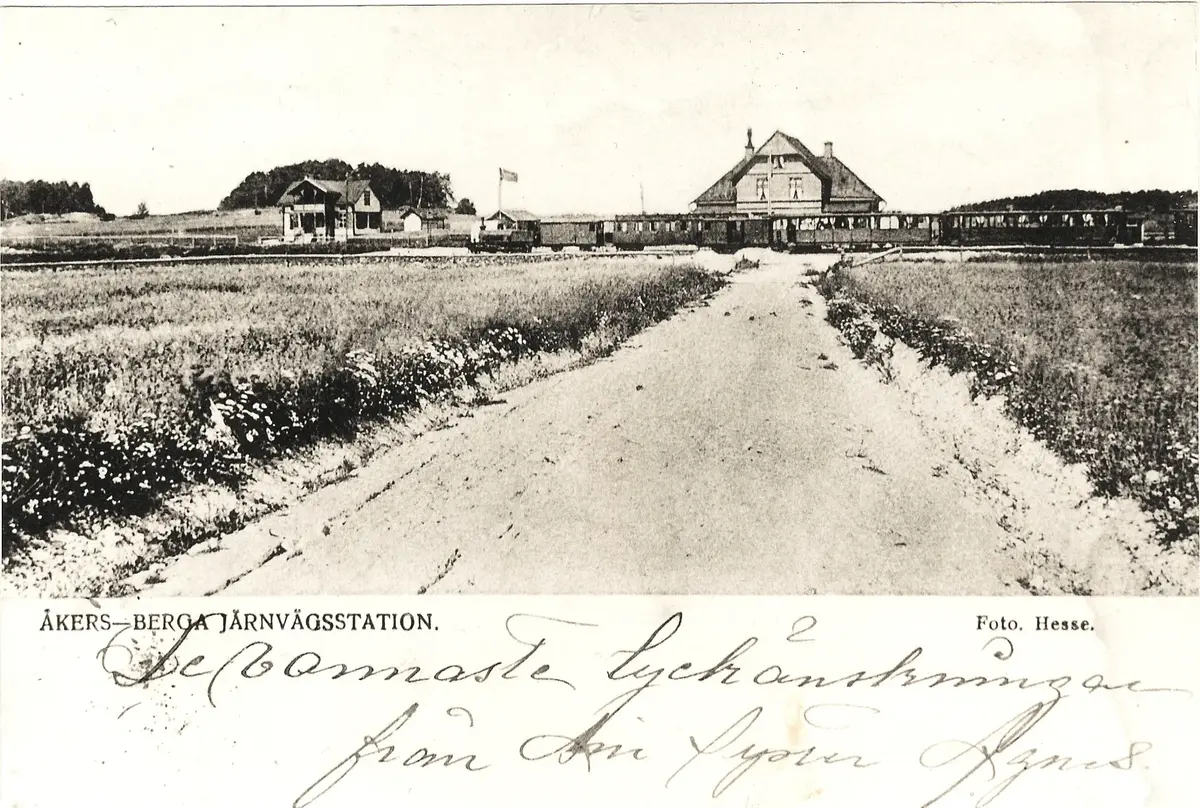 ÅKERS–BERGA JÄRNVÄGSSTATION.
Foto. Hesse.
De varmaste Lyckönskningar
från Din syster Agnes.